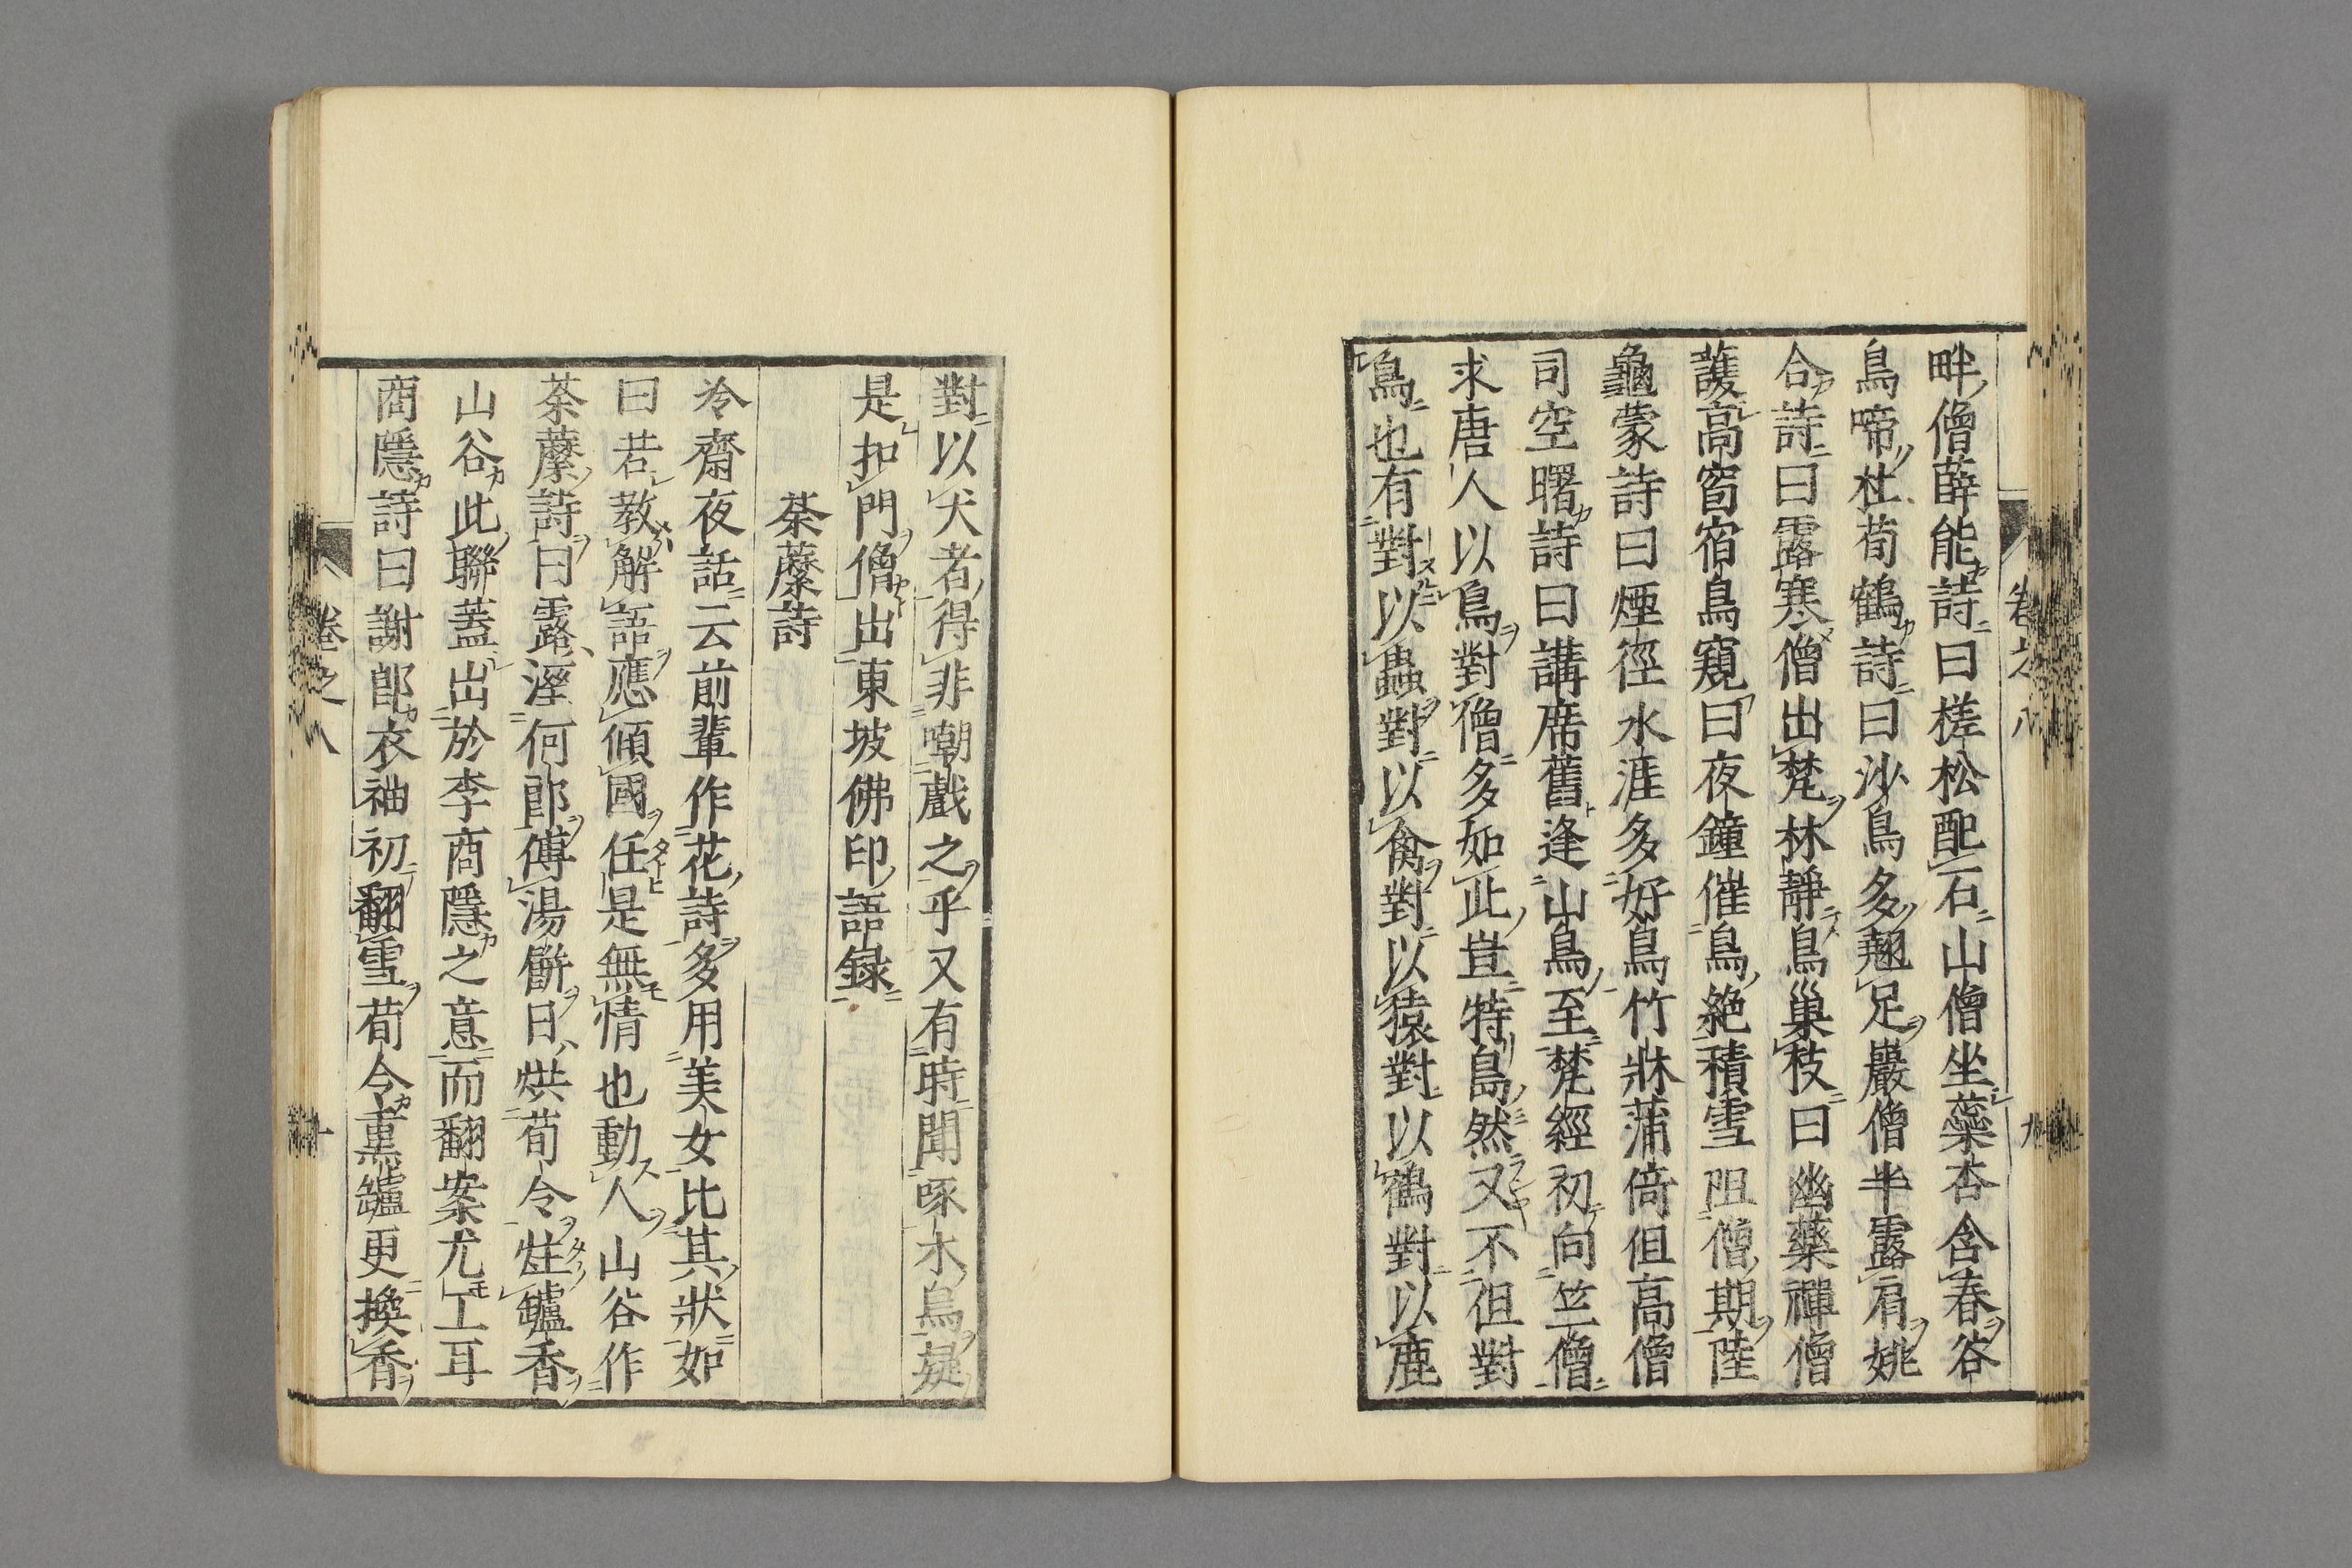 畔僧薛能詩曰槎松配石山僧坐蘂杏含春谷
鳥啼杜荀鶴詩曰沙鳥多翹足巖僧半露肩姚
合詩曰露寒僧出梵林靜鳥巢枝曰幽藥禪僧
護高窗宿鳥窺曰夜鐘催鳥絶積雪阻僧期陸
龜蒙詩曰煙徑水涯多好鳥竹牀蒲倚但高僧
司空曙詩曰講席舊逢山鳥至梵經初向竺僧
求唐人以鳥對僧多如此豈特島然又不但對
鳥也有對以蟲對以禽對以猿對以鶴對以鹿
卷之八
九
對以犬者得非嘲戲之乎又有時聞啄木鳥疑
是扣門僧出東坡佛印語録
荼蘼詩
冷齋夜話云前輩作花詩多用美女比其狀如
曰若教解語應傾國任是無情也動人山谷作
荼蘼詩曰露溼何郎傅湯餅日烘荀令炷罏香
山谷此聯蓋出於李商隱之意而翻案尤工耳
商隱詩曰謝郎衣袖初翻雪荀令熏罏更換香
卷之八
十